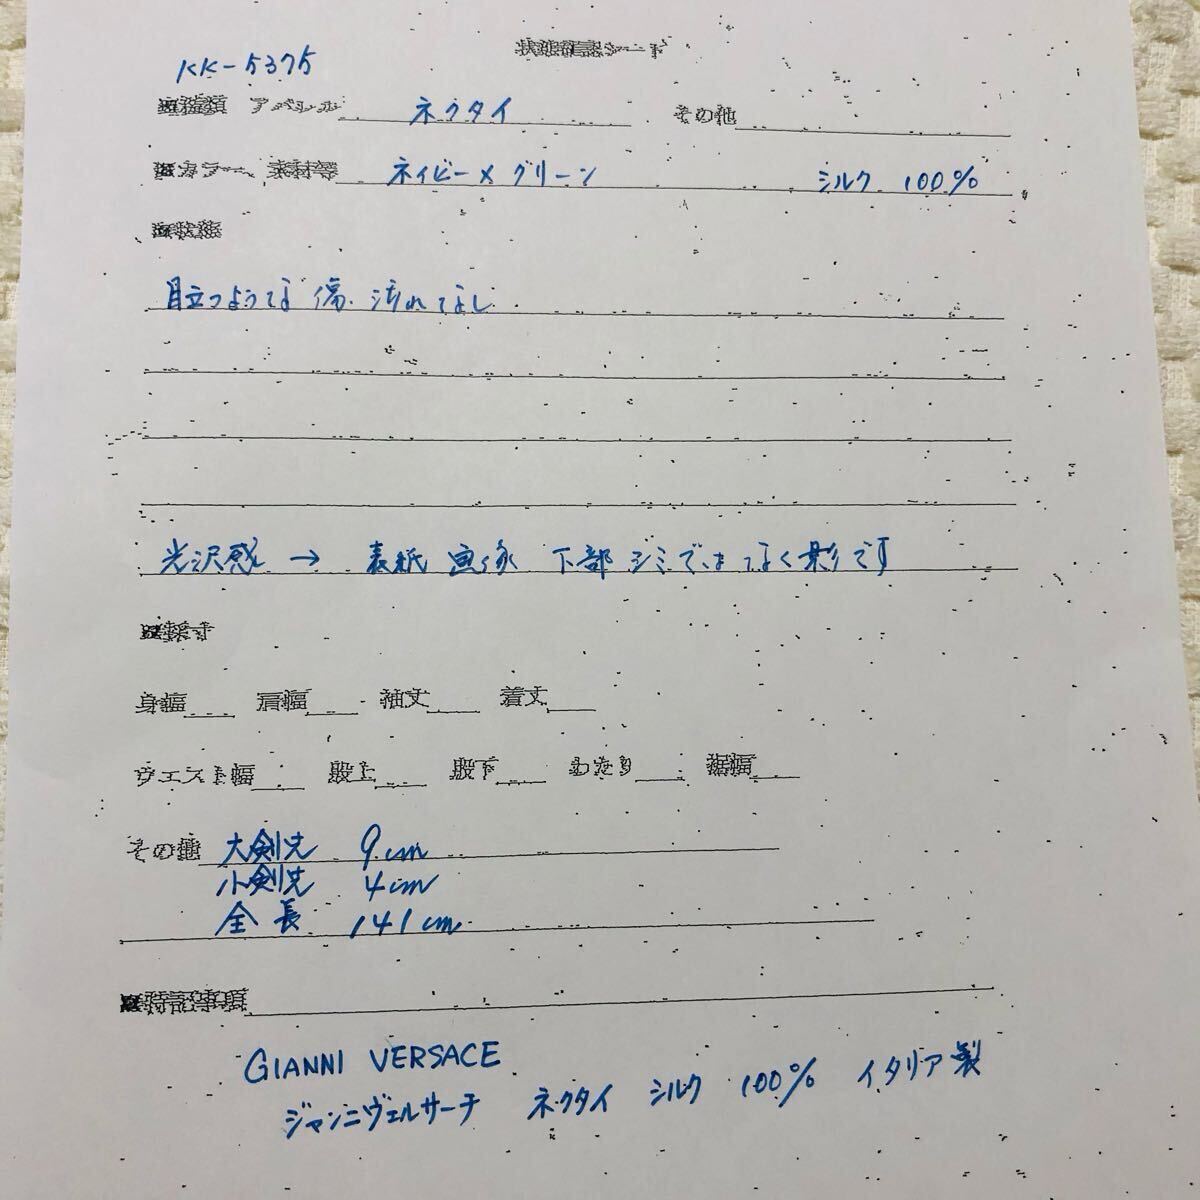 状態確認シート
KK-5375
■種類 アパレル ネクタイ その他
■カラー、素材等 ネイビー×グリーン シルク 100%
■状態
目立つような傷、汚れなし
光沢感 → 表紙 画像 下部 シミではなく影です
■採寸
身幅 肩幅 袖丈 着丈
ウエスト幅 股上 股下 わたり 裾幅
その他 大剣先 9cm
小剣先 4cm
全長 141cm
■特記事項
GIANNI VERSACE
ジャンニヴェルサーチ ネクタイ シルク 100% イタリア製